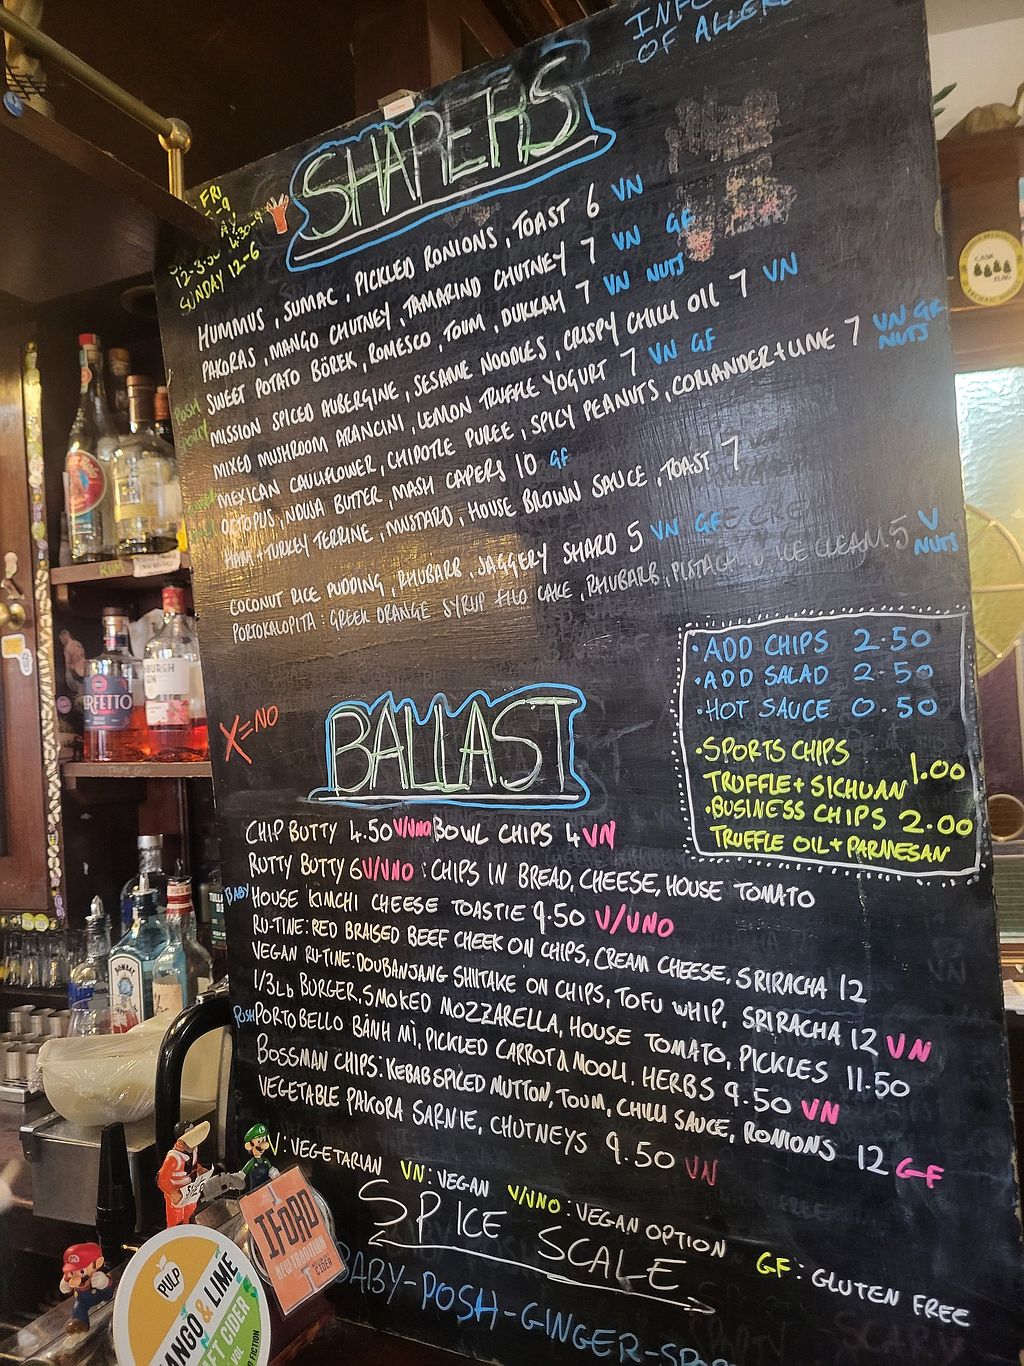 INFO
OF ALLER
SHAPERS
FRI
-9
4:30-9
12-3:30
SUNDAY 12-6
HUMMUS, SUMAC, PICKLED RONIONS, TOAST 6 VN
PAKORAS, MANGO CHUTNEY, TAMARIND CHUTNEY 7 VN GF
SWEET POTATO BÖREK, ROMESCO, TOUM, DUKKAH 7 VN NUTS
POSH MISSION SPICED AUBERGINE, SESAME NOODLES, CRISPY CHILLI OIL 7 VN
MIXED MUSHROOM ARANCINI, LEMON TRUFFLE YOGURT 7 VN GF
MEXICAN CAULIFLOWER, CHIPOTLE PUREE, SPICY PEANUTS, CORIANDER + LIME 7 VN GF NUTS
OCTOPUS, NDUJA BUTTER MASH CAPERS 10 GF
HAM + TURKEY TERRINE, MUSTARD, HOUSE BROWN SAUCE, TOAST 7
COCONUT RICE PUDDING, RHUBARB, JAGGERY SHARD 5 VN GF
PORTOKALOPITA: GREEK ORANGE SYRUP FILO CAKE, RHUBARB, PISTACHIO ICE CREAM 5 V NUTS
·ADD CHIPS 2.50
·ADD SALAD 2.50
·HOT SAUCE 0.50
·SPORTS CHIPS
TRUFFLE + SICHUAN 1.00
·BUSINESS CHIPS 2.00
TRUFFLE OIL + PARMESAN
X=NO
BALLAST
CHIP BUTTY 4.50 V/VNO BOWL CHIPS 4 VN
RUTTY BUTTY 6 V/VNO : CHIPS IN BREAD, CHEESE, HOUSE TOMATO
BABY HOUSE KIMCHI CHEESE TOASTIE 9.50 V/VNO
RU-TINE: RED BRAISED BEEF CHEEK ON CHIPS, CREAM CHEESE, SRIRACHA 12
VEGAN RU-TINE: DOUBANJANG SHIITAKE ON CHIPS, TOFU WHIP, SRIRACHA 12 VN
1/3Lb BURGER, SMOKED MOZZARELLA, HOUSE TOMATO, PICKLES 11.50
POSH PORTOBELLO BÀNH MÌ, PICKLED CARROT & MOOLI, HERBS 9.50 VN
BOSSMAN CHIPS: KEBAB SPICED MUTTON, TOUM, CHILLI SAUCE, RONIONS 12 GF
VEGETABLE PAKORA SARNIE, CHUTNEYS 9.50 VN
V: VEGETARIAN VN: VEGAN V/VNO: VEGAN OPTION GF: GLUTEN FREE
SPICE SCALE
BABY-POSH-GINGER-SPO
RUM
CASK
BOMBAY
PULP
MANGO & LIME
CIDER
IFORD
CIDER